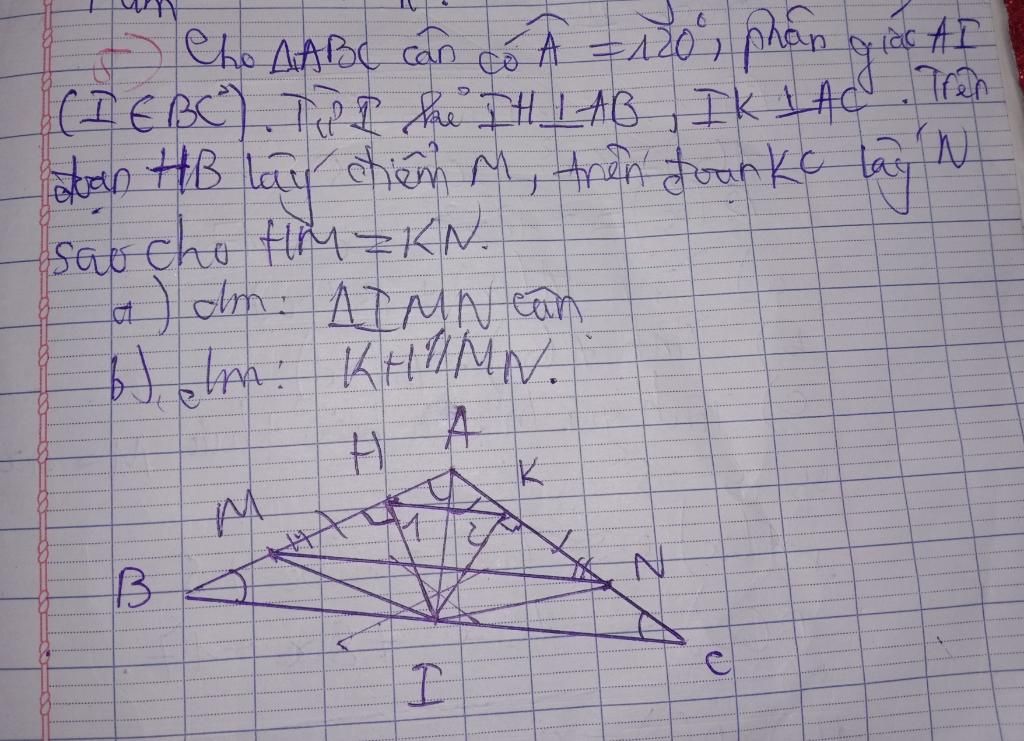 5) Cho ΔABC cân có Â = 120°, phân giác AI
(I ∈ BC). Từ I kẻ IH ⊥ AB, IK ⊥ AC. Trên
đoạn HB lấy điểm M, trên đoạn KC lấy N
sao cho HM = KN.
a) cm: ΔIMN cân
b) cm: KH // MN.
A
H
K
M
1
2
N
B
I
C